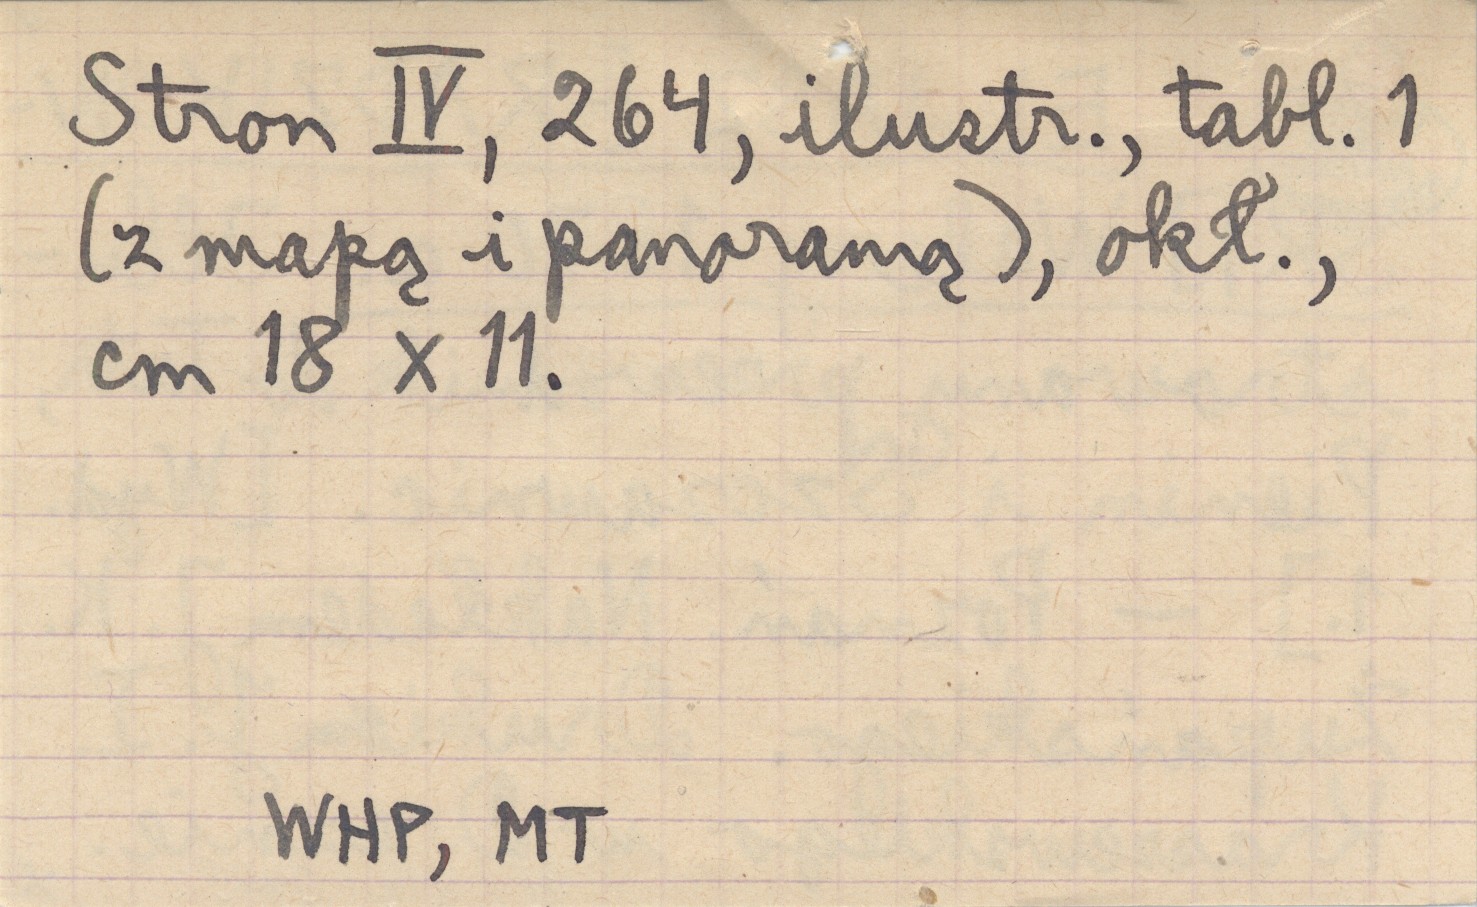 Stron IV, 264, ilustr., tabl. 1
(z mapą i panoramą), okł.,
cm 18 x 11.
WHP, MT